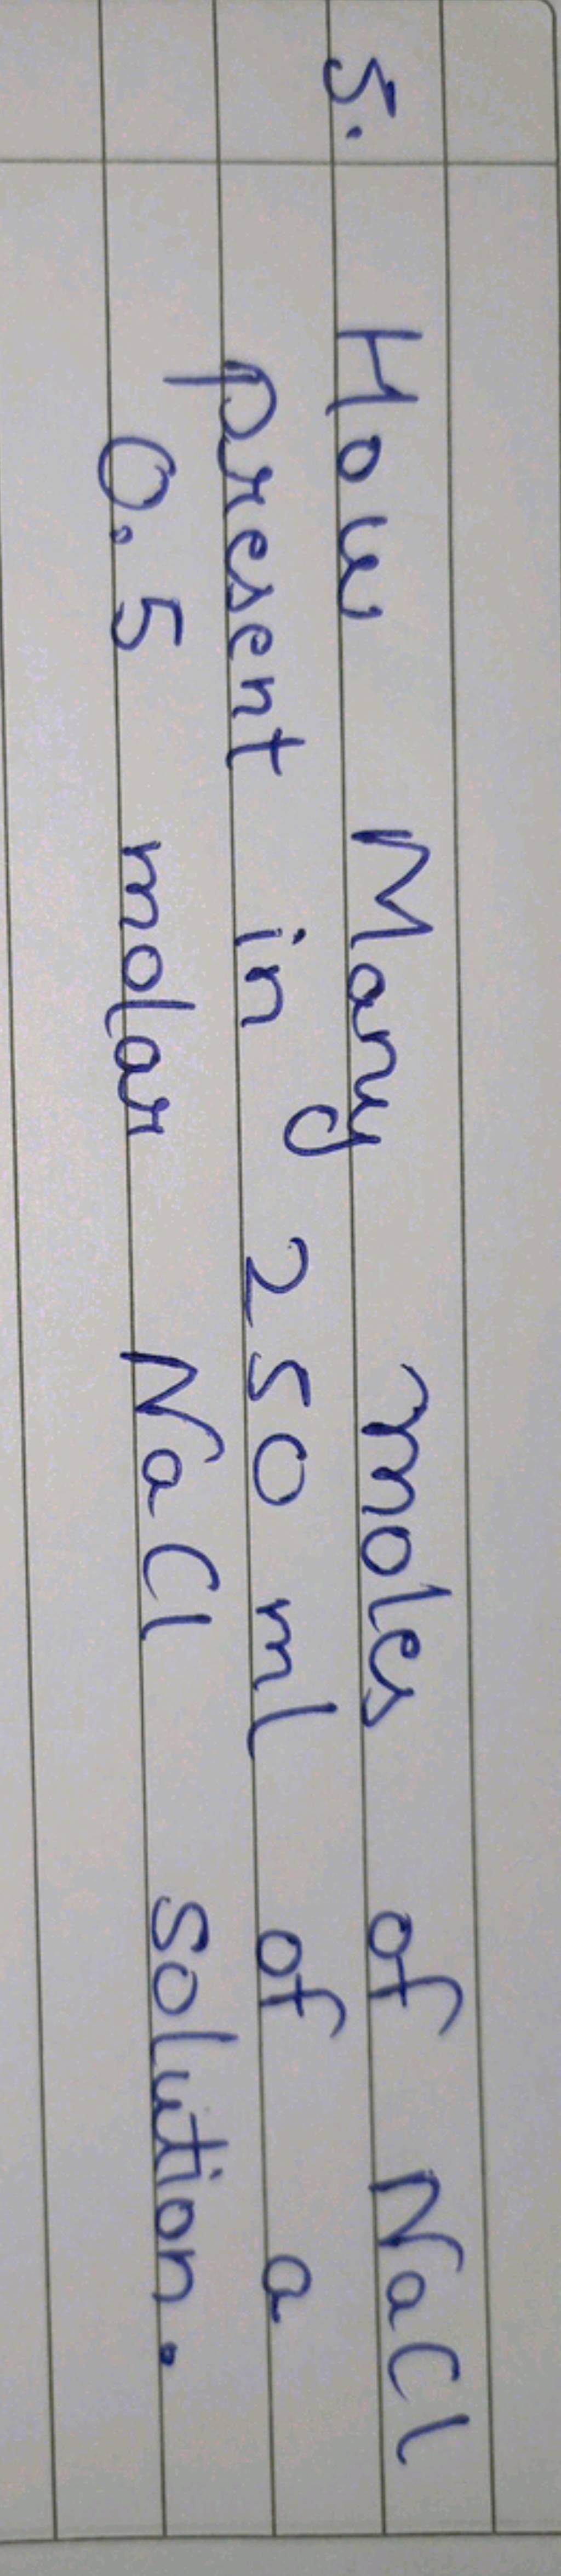 5. How Many moles of NaCl
present in 250 ml of a
0.5 molar NaCl solution.